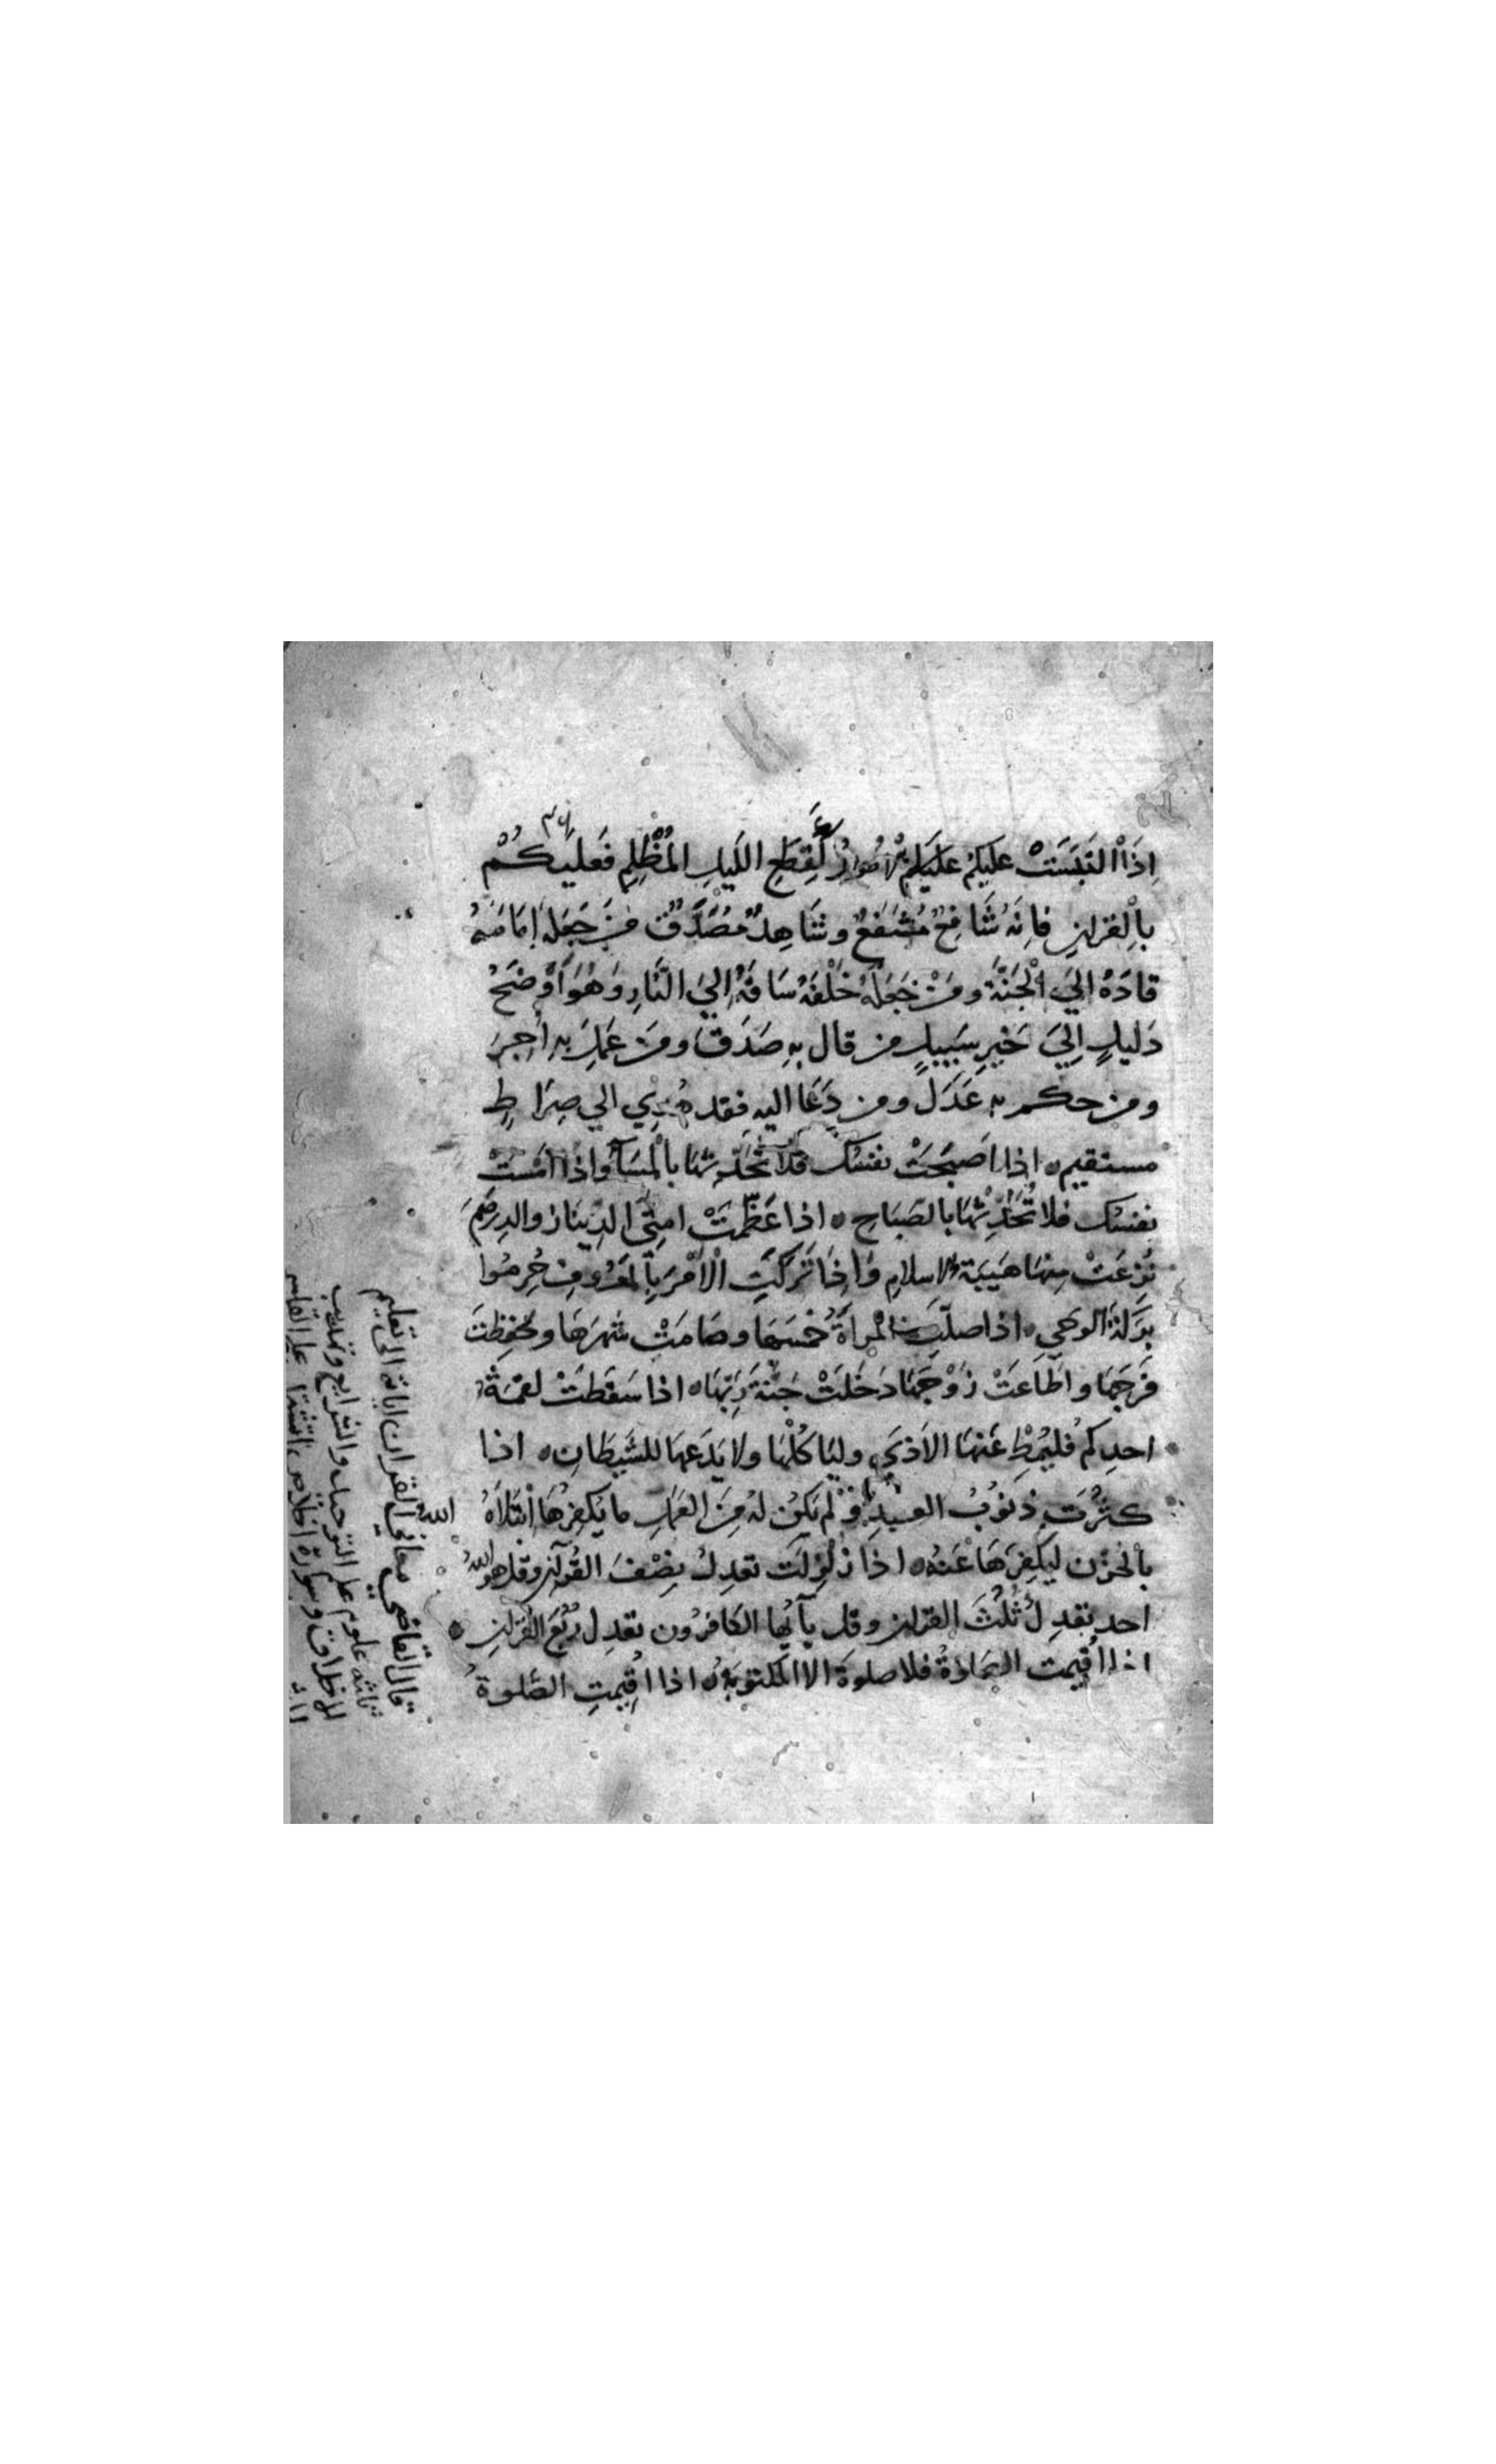 اِذَا الْتَبَسَتْ عليكم عليكم امور كَقِطَعِ الليلِ المُظْلِمِ فَعليكُمْ
بالقران فاِنَهُ شَافِعٌ مُشَفَعٌ وشَاهِدٌ مُصَدَّقٌ مَنْ جَعَلَهُ اِمَامَهُ
قادَهُ اِليَ الْجَنَّة ومَنْ جَعَلَهُ خَلْفَهُ سَاقَهُ اِليَ النَّارِ وَهُوَ اَوْضَحُ
دَليلٍ اِليَ خَيرِ سَبِيلٍ من قال بِهِ صَدَقَ ومَنْ عَمِلَ بِهِ اُجِرَ
ومن حكم به عَدَلَ ومن دَعَا اليهِ فقد هُدِي الي صِرَاطٍ
مستقيم ه اذا اَصبَحَتْ نفسُك فلا تُحَدِّثْهَا بالْمَسَآ واِذَا اَمْسَتْ
نفسُك فلا تُحَدِّثْهَا بالصَبَاحِ ه اذا عَظَّمَتْ امتِى الدِينَارَ والدِرهَمَ
نُزِعَتْ مِنهَا هَيبَة الاسلامِ وَاِذَا تَرَكَتِ الْاَمْرَ بِالْمَعْرُوفِ حُرِمُوا
بَرَكَةَ الوحي ه اذا صلَّتِ الْمرأةُ خَمْسَهَا وصَامَتْ شَهرَهَا وحَفِظَتْ
فَرجَهَا واَطَاعَتْ زَوْجَهَا دَخَلَتْ جَنَّةَ رَبِّهَا ه اذا سَقَطَتْ لقمَةُ
احدِكم فليُمِطْ عَنهَا الاَذَي وليَاكُلْهَا ولا يَدَعهَا للشَّيطَانِ ه اذا
كثُرَت ذنوُبُ العبدِ فَلم يَكن لَهُ مِنَ العَمَلِ ما يُكفِرُهَا اِبْتَلَاهُ الله
بالْحُزْنِ ليُكفِرَهَا عَنهُ ه اذَا زُلزِلَت تعدِلُ نِصْفَ القُرآن وقل هو الله
احد تعدِلُ ثُلُثَ القران وقل يآيُّها الكَافرُون تعدِل رُبُعَ القُرَان ه
اذا اُقيمت الصلاة فلا صلوةَ الا المكتوبَةُ ه اذا اُقِيمتِ الصَّلوة
قال القاضي معاني القران اباية الى تعليم
ثلثه علوم علم التوحيد والشرايع وتهذيب
الاخلاق وسورة اخلاص